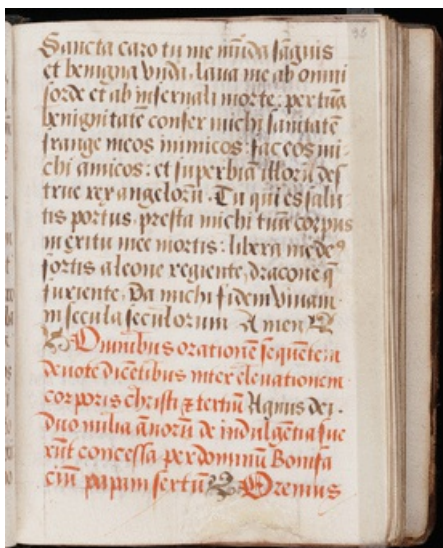 95
Sancta caro tu me mũda sãguis
et benigna vnda. laua me ab omni
sorde et ab infernali morte: per tuã
benignitatẽ confer michi sanitatẽ
frange meos inimicos: fac eos mi-
chi amicos: et superbiã illorũ des
true rex angelorũ. Tu qui es salu
tis portus. presta michi tuũ corpus
in exitu mee mortis: libera me de⁹
fortis a leone regiente, dracone q̃
furiente. Da michi fidem viuam.
in secula seculorum Amen
Omnibus orationẽ sequentem
deuote dicẽtibus inter eleuationem
corporis christi ⁊ tertiũ Agnus dei.
duo milia ãnorũ de indulgẽtia fue
rũt concessa per dominũ Bonifa
ciũ papam sextũ Oremus